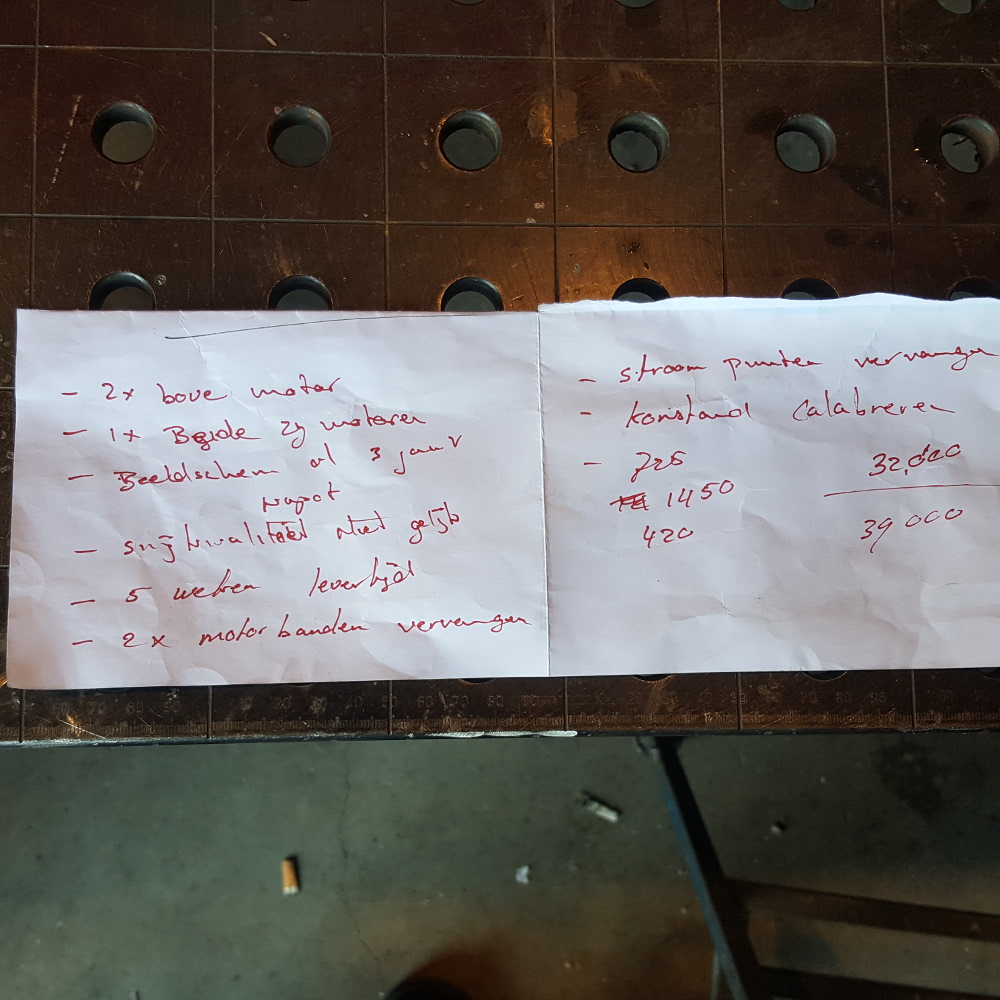 - 2x bove motor
- 1x Beyde zy motoren
- Beeldscherm al 3 jaar
kapot
- snijkwaliteit niet gelijk
- 5 weken levertijd
- 2x motor banden vervangen
- stroom punten vervangen
- konstand Calabreren
- 725
1450
420
32,000
39 000